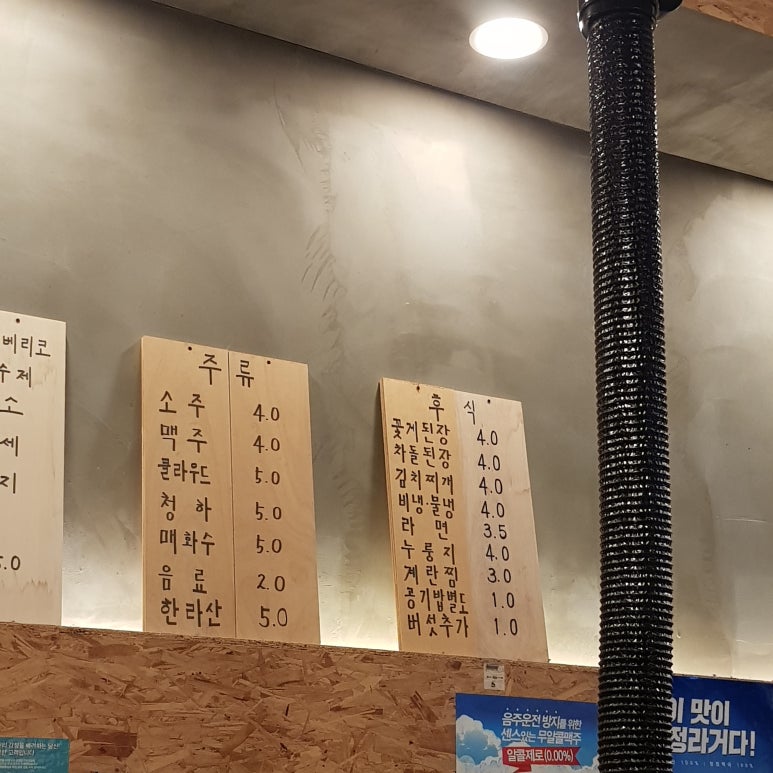 베리코
수제
소
세
지
5.0
주류
소주 4.0
맥주 4.0
클라우드 5.0
청하 5.0
매화수 5.0
음료 2.0
한라산 5.0
후식
꽃게된장 4.0
차돌된장 4.0
김치찌개 4.0
비냉물냉 4.0
라면 3.5
누룽지 4.0
계란찜 3.0
공기밥별도 1.0
버섯추가 1.0
음주운전 방지를 위한
센스있는 무알콜맥주
알콜제로(0.00%)
이 맛이
정라거다!